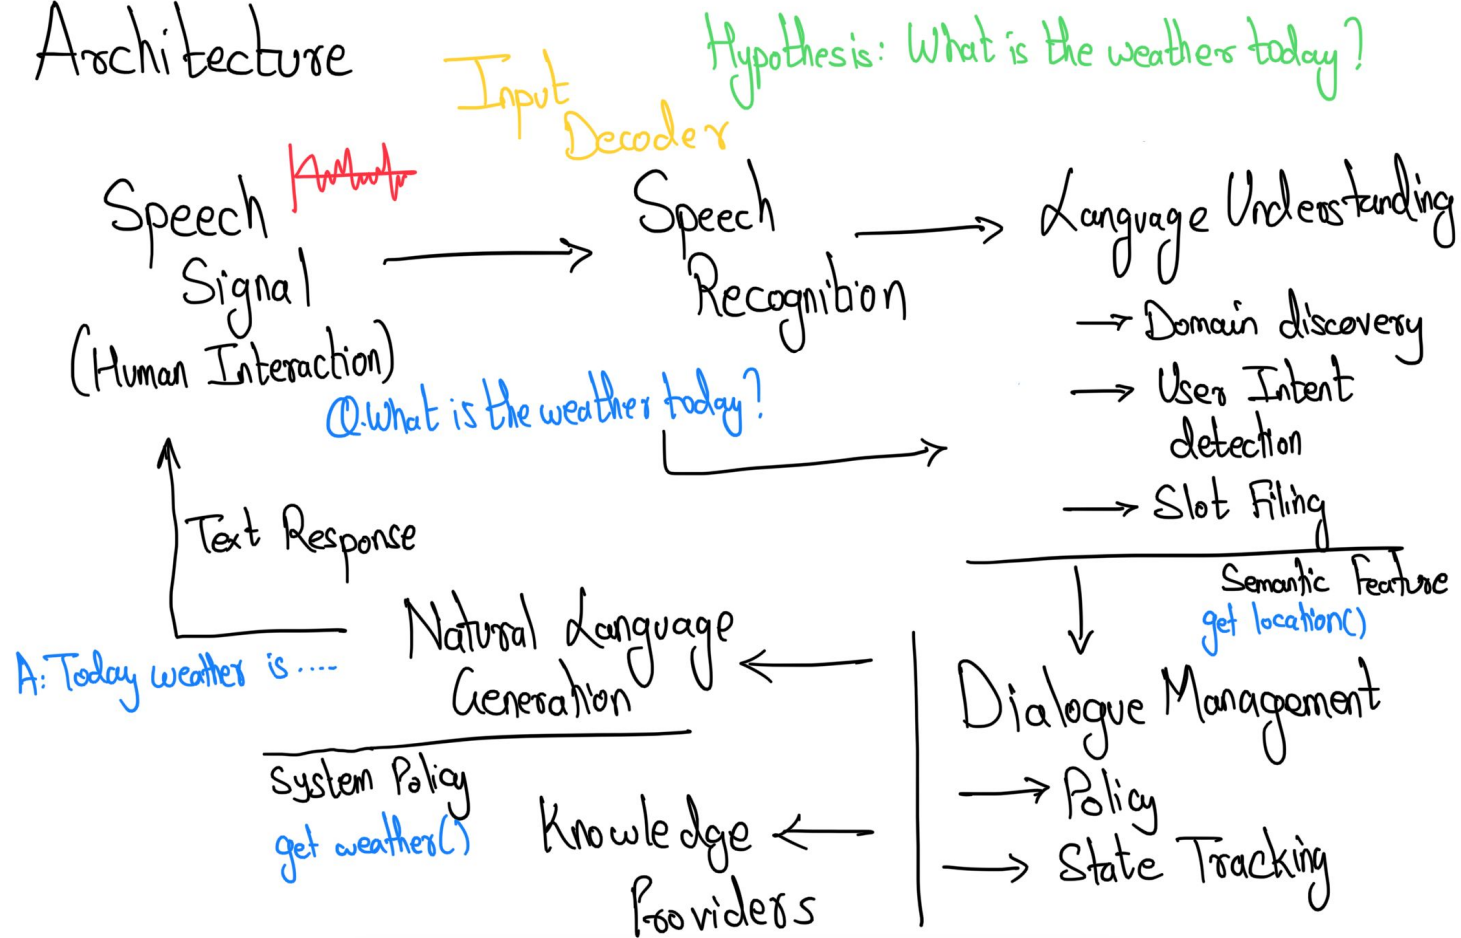 Architecture
Hypothesis: What is the weather today?
Input
Decoder
Speech
Signal
(Human Interaction)
Speech
Recognition
Language Understanding
→ Domain discovery
→ User Intent
detection
→ Slot Filing
Q.What is the weather today?
Semantic Feature
get location()
Text Response
Natural Language
Generation
A: Today weather is ....
Dialogue Management
→ Policy
→ State Tracking
System Policy
get weather()
Knowledge
Providers